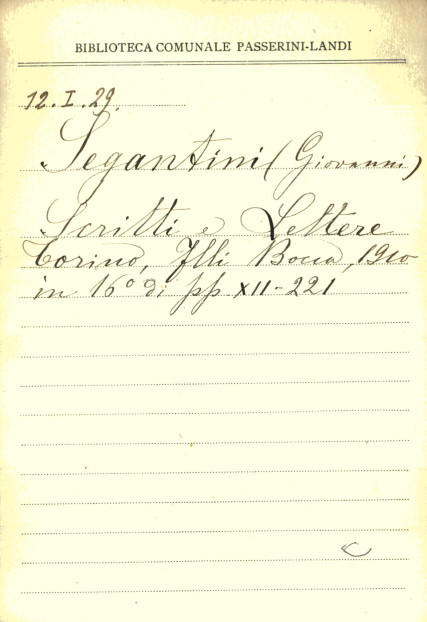 BIBLIOTECA COMUNALE PASSERINI-LANDI
12.I.29.
Segantini (Giovanni)
Scritti e Lettere
Torino, Flli Bocca, 1910
in 16° di pp XII-221